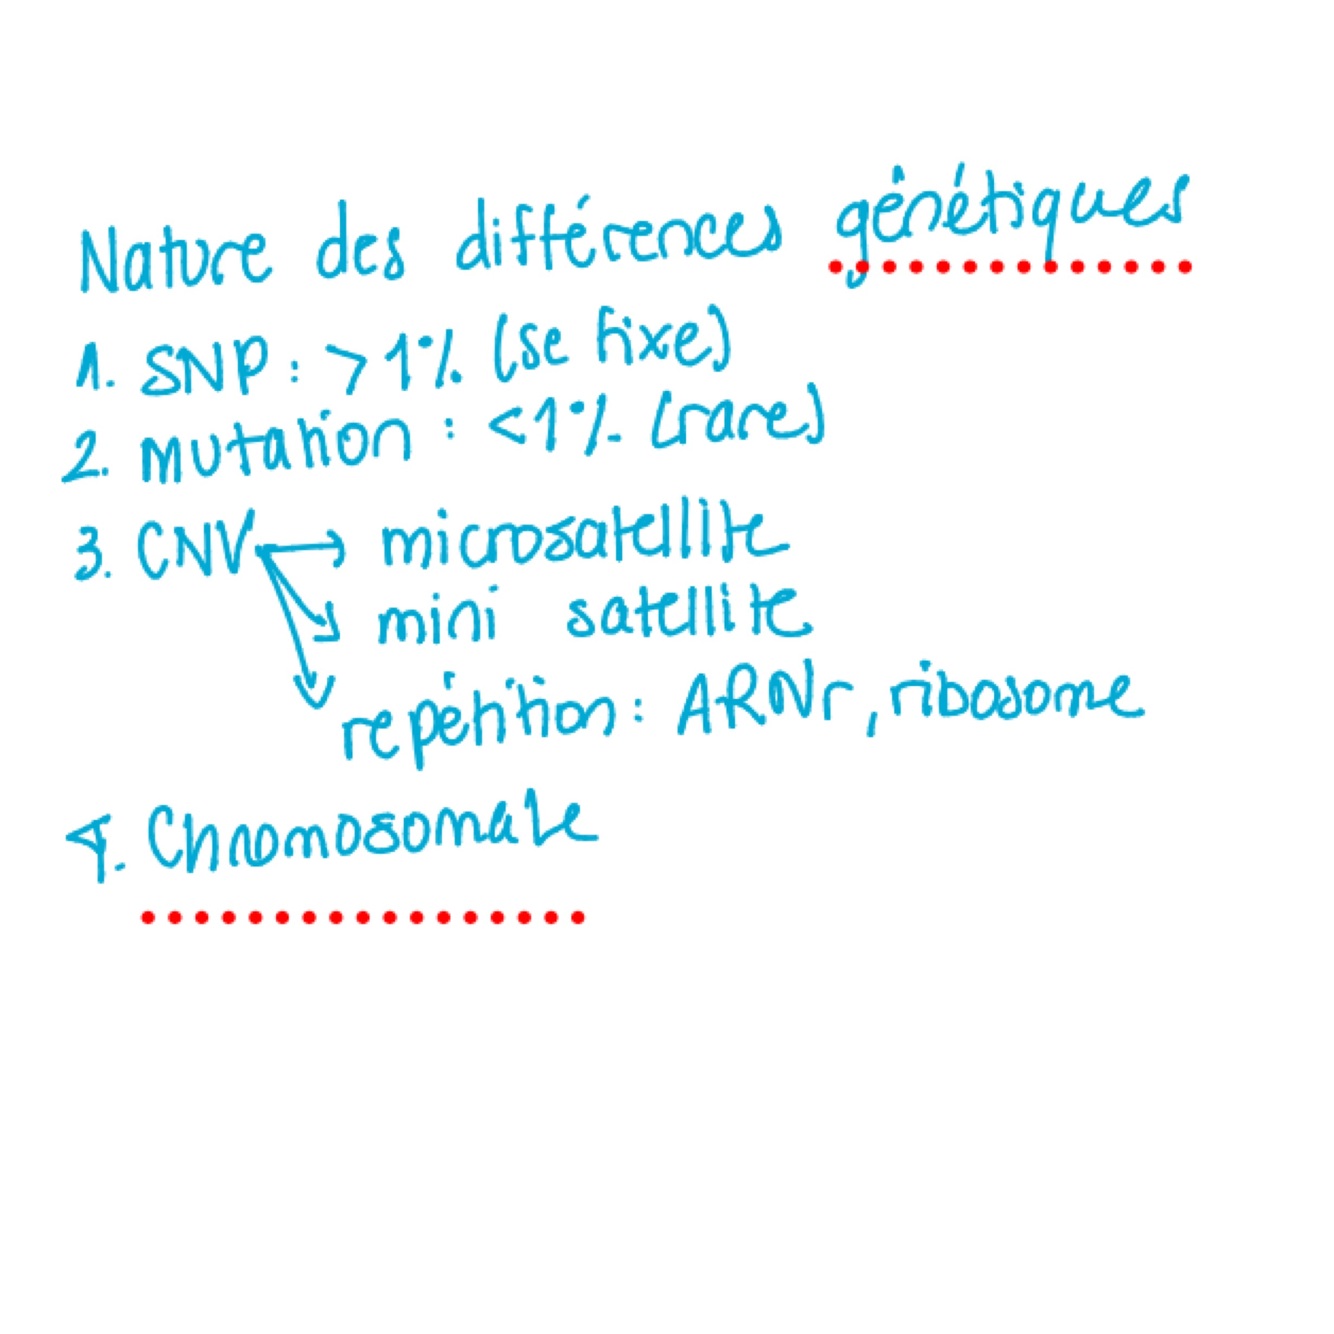 Nature des différences génétiques
1. SNP : >1% (se fixe)
2. mutation : <1% (rare)
3. CNV → microsatellite
mini satellite
repétition : ARNr, ribosome
4. Chromosomale